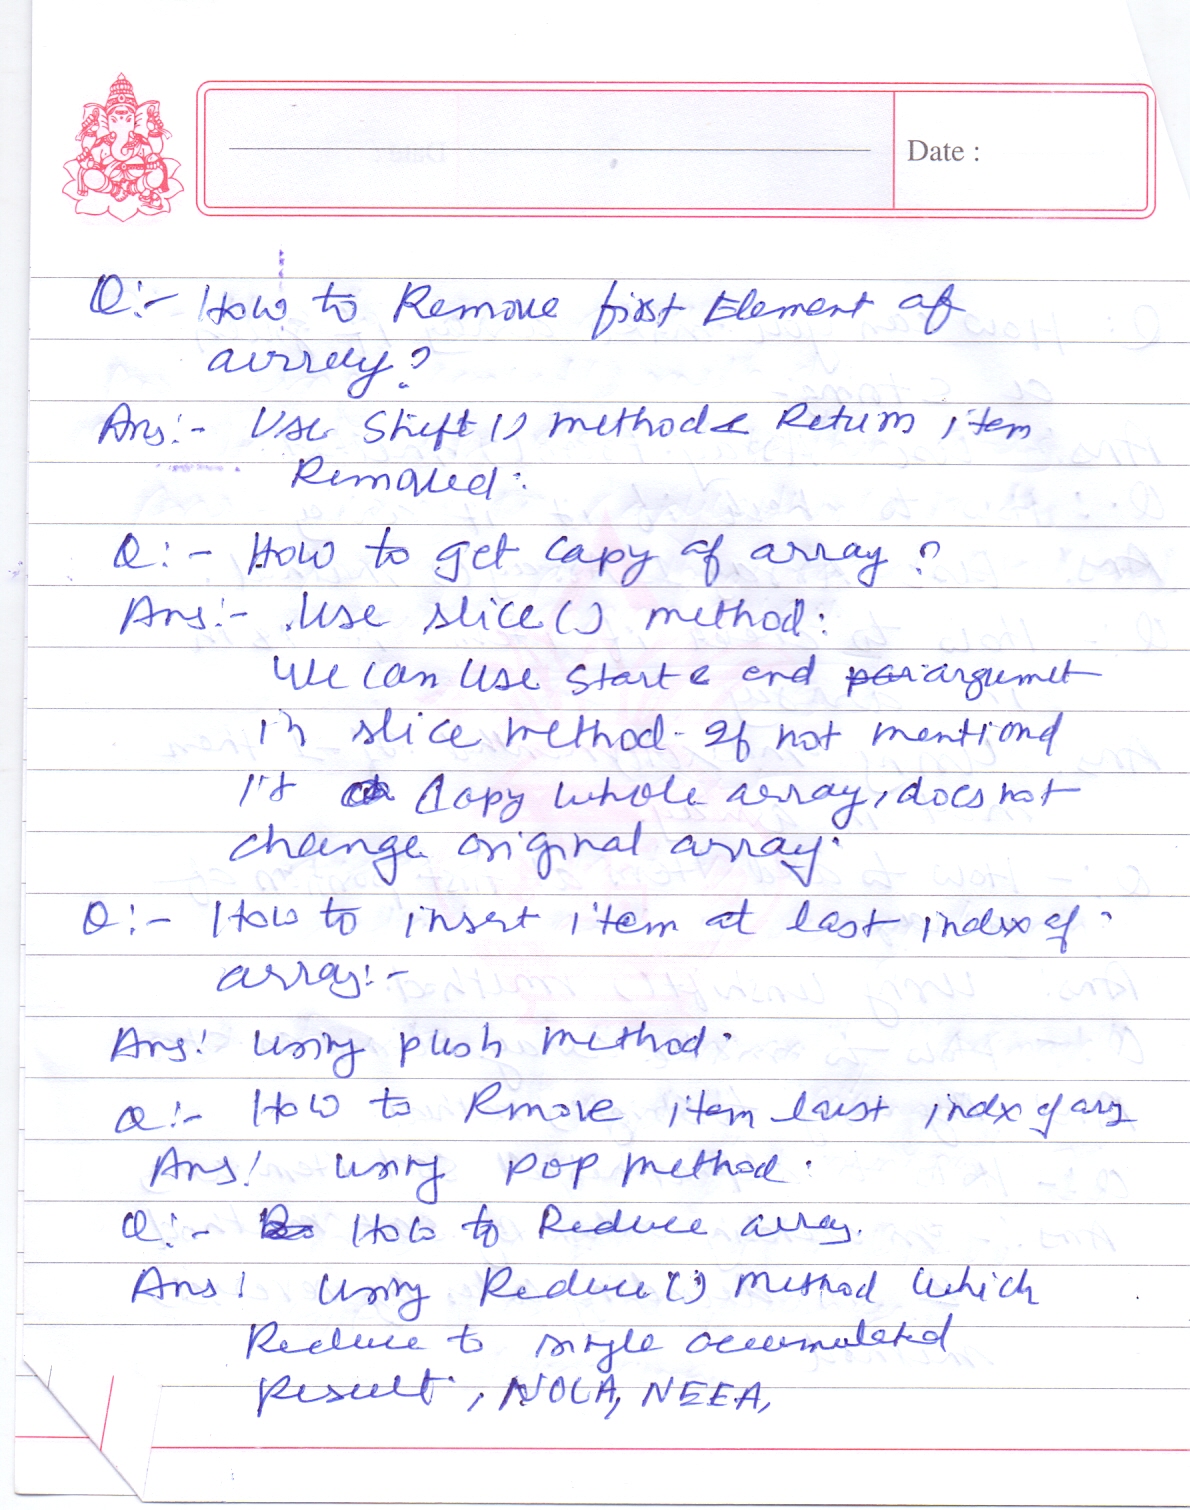 Date :
Q:- How to Remove first Element of
array?
Ans:- Use Shift () method & Return item
Removed.
Q:- How to get copy of array ?
Ans:- Use slice() method:
We can use start & end argumet
in slice method. If not mentiond
it copy whole array, does not
change original array.
Q:- How to insert item at last index of
array:-
Ans! Using push method.
Q:- How to Rmove item last indx of arry
Ans! Using pop method.
Q:- How to Reduce array.
Ans! Using Reduce() method which
Reduce to single accumulated
Result. , NOLA, NEEA,